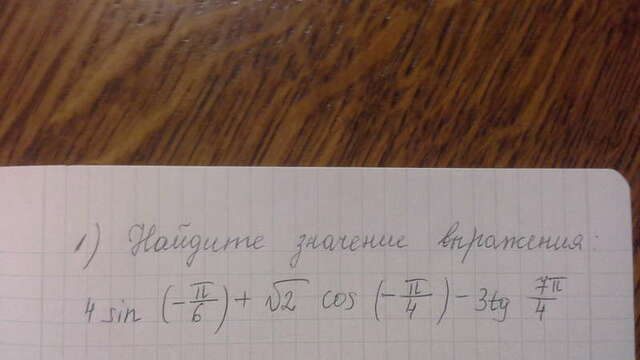 1) Найдите значение выражения:
4 sin (-π/6) + √2 cos (-π/4) - 3tg 7π/4